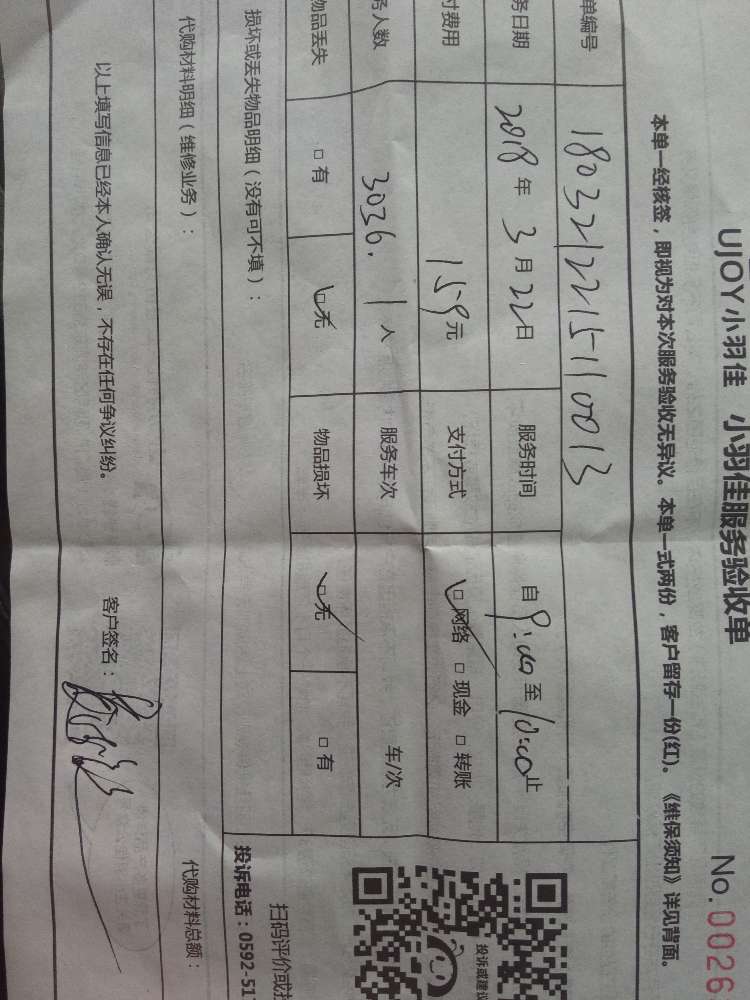 UJOY小羽佳 小羽佳服务验收单
No.0026
本单一经核签，即视为对本次服务验收无异议。本单一式两份，客户留存一份(红)。《维保须知》详见背面。
单编号 1803212215110013
务日期 2018年3月22日 服务时间 自9:00至10:00止
付费用 159元 支付方式 □网络 □现金 □转账
务人数 3036. 1人 服务车次 车/次
物品丢失 □有 □无 物品损坏 □无 □有
投诉或建议
扫码评价或投
投诉电话：0592-511
损坏或丢失物品明细（没有可不填）：
代购材料明细（维修业务）： 代购材料总额：
以上填写信息已经本人确认无误，不存在任何争议纠纷。 客户签名：